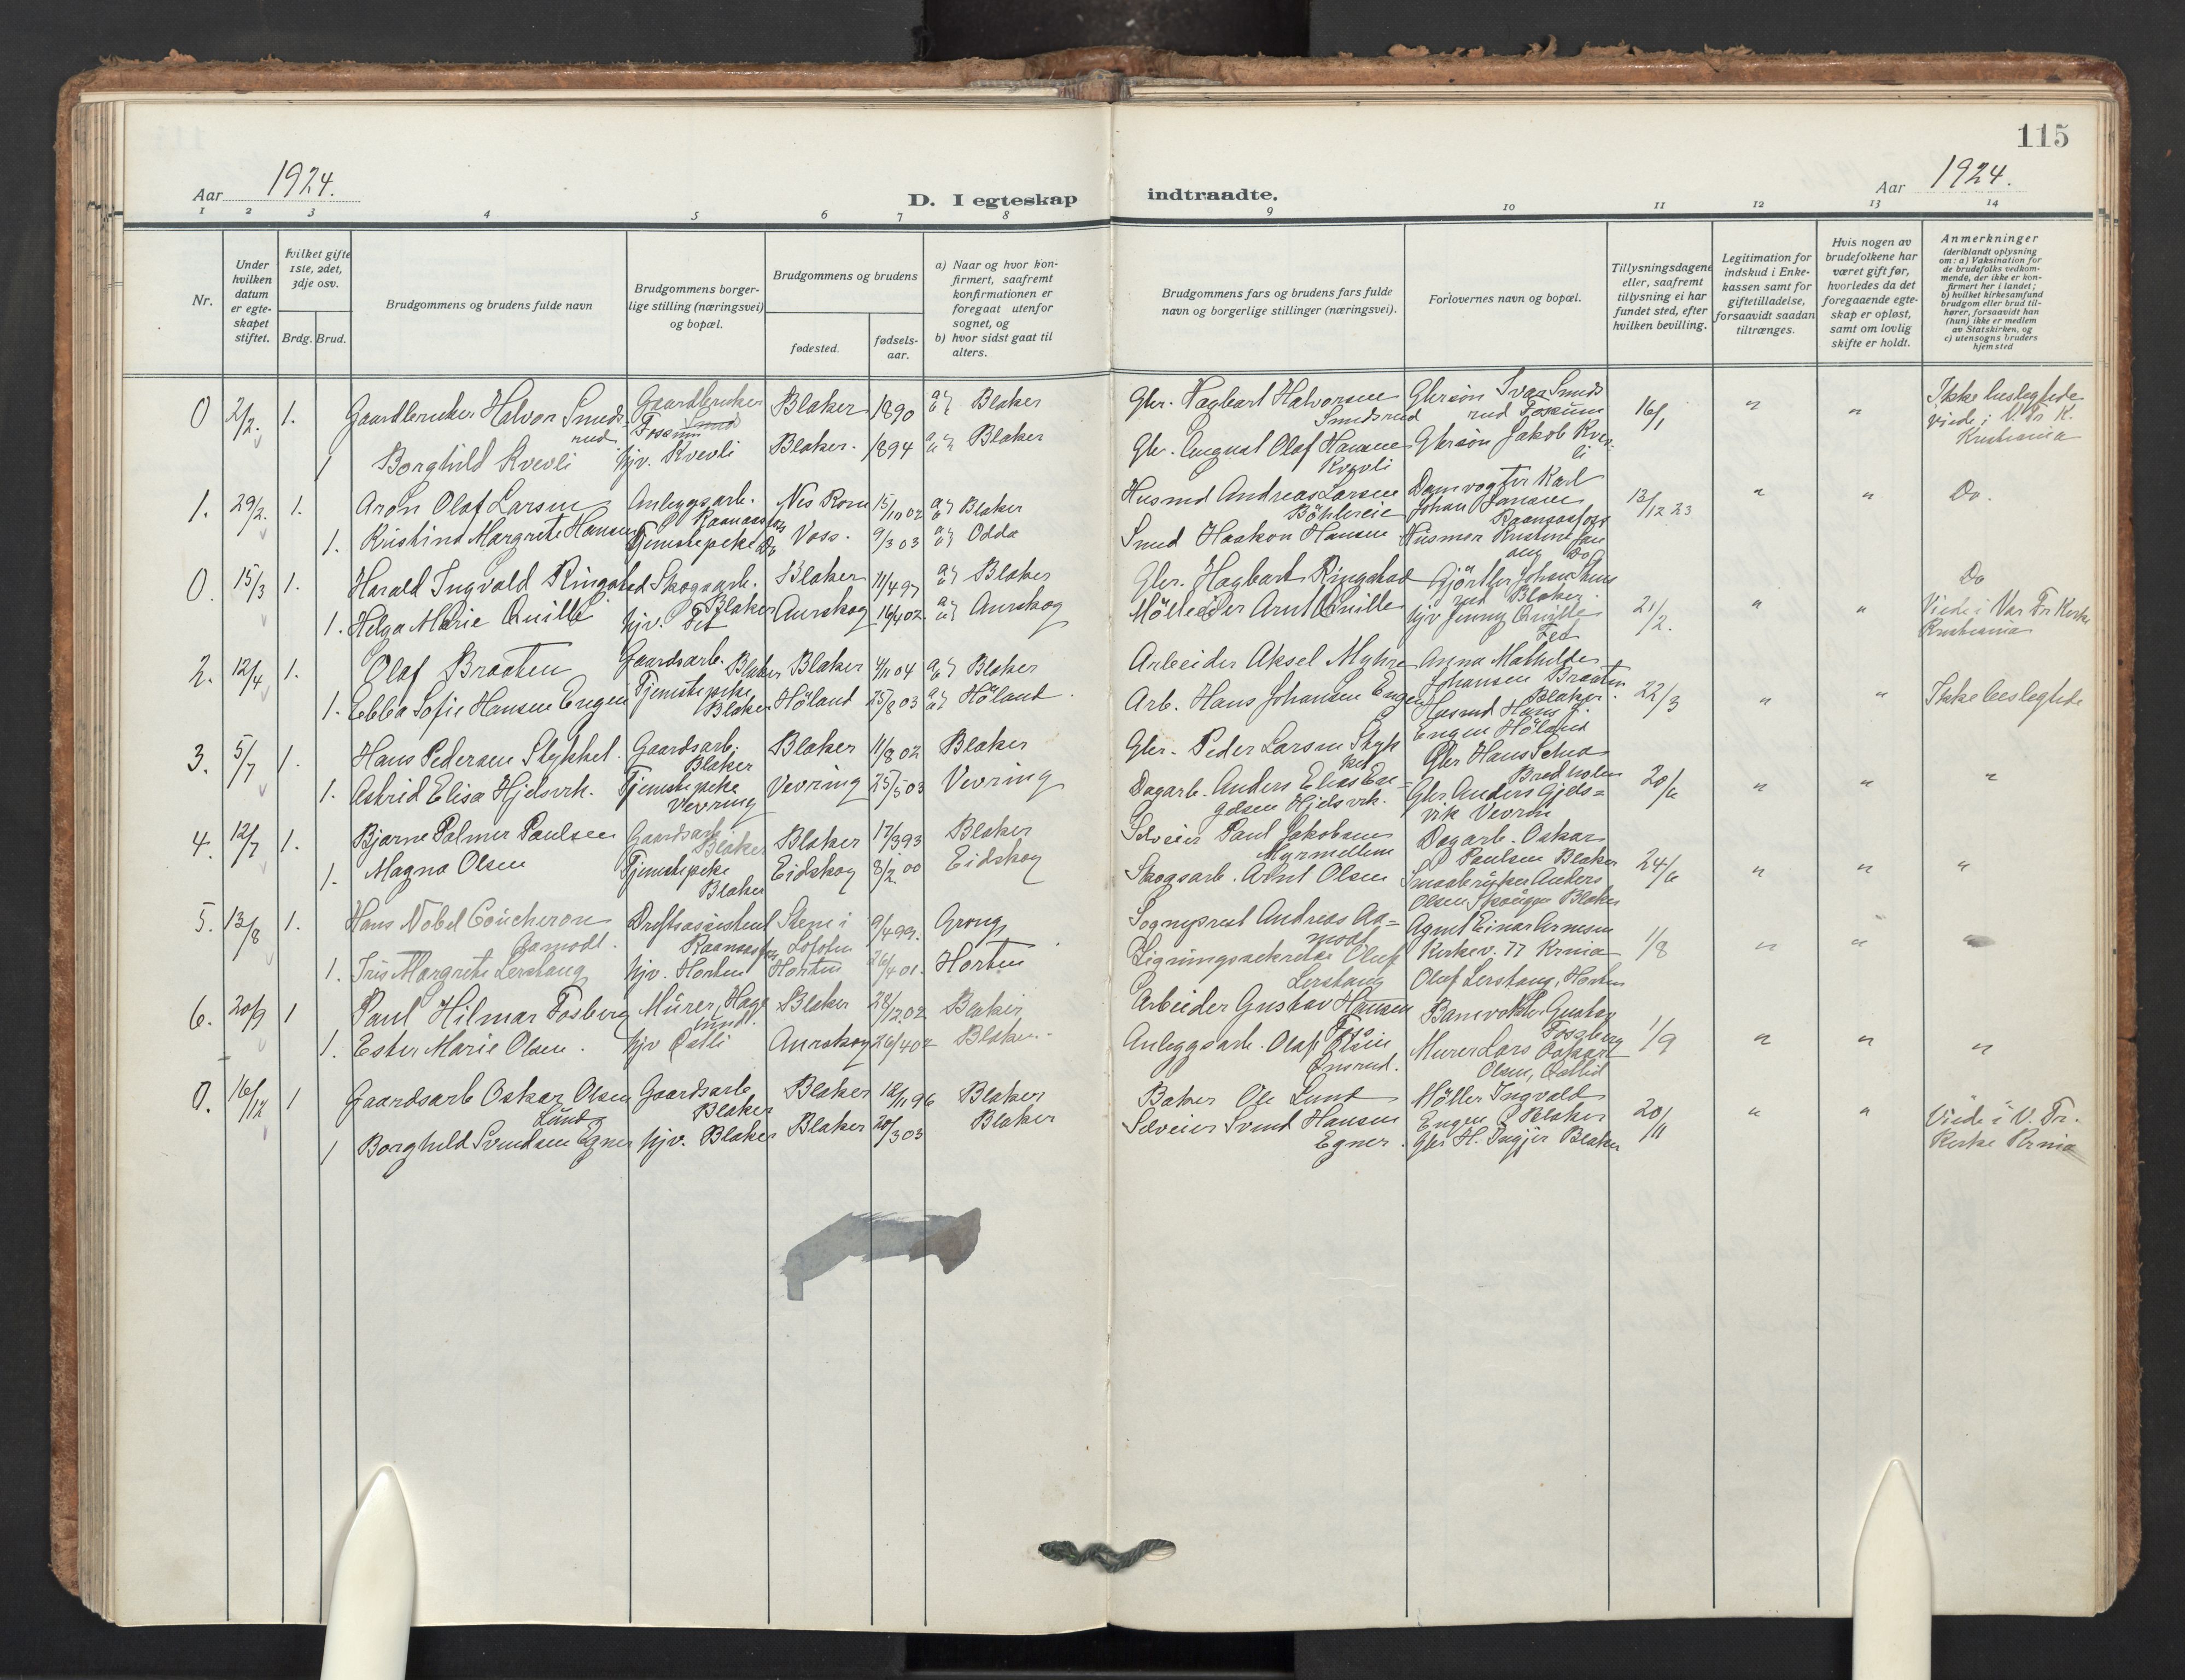 115
Aar 1924.
D. I egteskap indtraadte.
Aar 1924.
1 2 3 4 5 6 7 8 9 10 11 12 13 14
Nr.
Under hvilken datum er egteskapet stiftet.
Hvilket gifte 1ste, 2det, 3dje osv.
Brdg. Brud.
Brudgommens og brudens fulde navn
Brudgommens borgerlige stilling (næringsvei) og bopæl.
Brudgommens og brudens
fødested.
fødselsaar.
a) Naar og hvor konfirmert, saafremt konfirmationen er foregaat utenfor sognet, og
b) hvor sidst gaat til alters.
Brudgommens fars og brudens fars fulde navn og borgerlige stillinger (næringsvei).
Forlovernes navn og bopæl.
Tillysningsdagene eller, saafremt tillysning ei har fundet sted, efter hvilken bevilling.
Legitimation for indskud i Enkekassen samt for giftetilladelse, forsaavidt saadan tiltrænges.
Hvis nogen av brudefolkene har været gift før, hvorledes da det foregaaende egteskap er opløst, samt om lovlig skifte er holdt.
Anmerkninger (deriblandt oplysning om: a) Vaksination for de brudefolks vedkommende, der ikke er konfirmert her i landet; b) hvilket kirkesamfund brudgom eller brud tilhører, forsaavidt han (hun) ikke er medlem av Statskirken, og c) utensogns bruders hjemsted
0 2/2. 1. Gaardbruker Halvor Smedsrud Gaardbruker Fossum Blaker 1890 a) b) Blaker Gbr. Hagbart Halvorsen Smedsrud Gbrsøn Ivar Smedsrud Fossum 16/1 " " Ikke beslegtede viede i V. Fr. K. Kristiania
1 Borghild Kvevli hjv. Kvevli Blaker. 1894 a) b) Blaker Gbr. August Olaf Hansen Kvevli Gbrsøn Jakob Kvevli
1. 29/2. 1. Aron Olaf Larsen Anleggsarb. Raanaasfos Nes Rom 15/10 02 a) b) Blaker Husmd Andreas Larsen Böhlereie Damvogter Karl Johan Jansen Raanaasfoss 13/12 23 " " Do.
1. Kristine Margrete Hansen Tjenestepike Do Voss. 9/3 03 a) b) Odda Smed Haakon Hansen Husmor Kristine Do
0. 15/3 1. Harald Ingvald Ringstad Skogsarb. Blaker Blaker 11/4 97 a) b) Blaker Gbr. Hagbart Ringstad Gjörtler Johan Blaker. 21/2. " " Do Viede i Var Fr Kirke Kristiania
1. Helga Marie Quille hjv. Fet Aurskog 16/4 02. a) b) Aurskog Mölleeier Arnt Quille hjv Jenny Quille Fet
2. 12/4 1. Olaf Braaten Gaardsarb. Blaker Blaker 4/11 04 a) b) Blaker Arbeider Aksel Myhre Anna Mathilde Johansen Braaten Blaker. 22/3 " " Ikke beslegtede
1. Ebba Sofie Hansen Engen Tjenestepike Blaker Höland 25/8 03 a) b) Höland. Arb. Hans Johansen Engen Husmd Hans J. Engen Höland
3. 5/7 1. Hans Pedersen Stykket. Gaardsarb. Blaker Blaker 11/8 02 Blaker Gbr. Peder Larsen Stykket Gbr Hans Bredholen 20/6 " " "
1. Astrid Elisa Hjelsvik. Tjenestepike Vevring Vevring 25/5 03 Vevring Dagarb. Anders Elias Hjelsvik. Gbr Anders Gjelsvik Vevrin
4. 12/7 1. Bjarne Palmer Paulsen Gaardsarb. Blaker Blaker 17/3 93 Blaker Selveier Paul Jakobsen Myrmellem Dagarb. Oskar Paulsen Blaker 24/6 " " "
1. Magna Olsen Tjenestepike Blaker Eidskog 8/2 00 Eidskog Skogsarb. Arnt Olsen Smaabruker Anders Olsen Blaker
5. 13/8 1. Hans Nobel Coucheron Aamodt. Driftsassistent Raanaasfos Stene i Lofoten 9/4 99. Grong Sogneprest Andreas Aamodt Agnet Einar Arnesen Kirkev. 77 Krania 1/8 " " "
1. Iris Margrete Lerstang hjv. Horten Horten 26/4 01. Horten Ligningssekretær Oluf Lerstang Oluf Lerstang, Horten
6. 20/9 1 Paul Hilmar Fosberg Murer, Hagelund. Blaker 28/12 02 Blaker Arbeider Gustav Hansen Foss Banevokter Gustav Fossberg 1/9 " " "
1. Ester Marie Olsen. hjv Østli Aurskog 26/4 02 Blaker. Anleggsarb. Olaf Olsen Ensrud. Murer Lars Oskar Olsen, Østlid
0. 16/12 1 Gaardsarb Oskar Olsen Lund Gaardsarb Blaker Blaker 12/11 96 Blaker Baker Ole Lund Möller Ingvald Engen Blaker 20/11 " " Viede i V. Fr. Kirke Krnia
1 Borghild Svendsen Egner hjv. Blaker Blaker 20/3 03 Blaker Selveier Svend Hansen Egner. Gbr H. Blaker